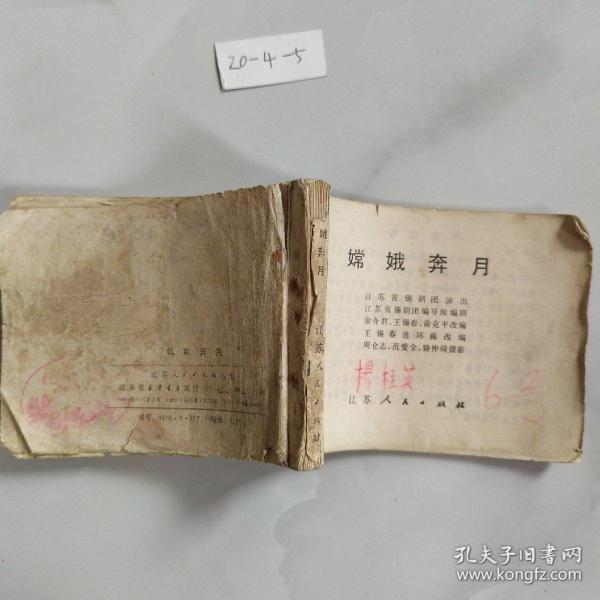 20-4-5
嫦娥奔月
江苏省锡剧团演出
江苏省锡剧团编导组编剧
俞介君、王锡春、俞克平改编
王锡春连环画改编
周仓志、范爱全、骆仲琦摄影
杨桂英
6号
江苏人民出版社
娥奔月
江苏人民出版社
嫦娥奔月
江苏人民出版社
江苏省新华书店发行
孔夫子旧书网
www.kongfz.com